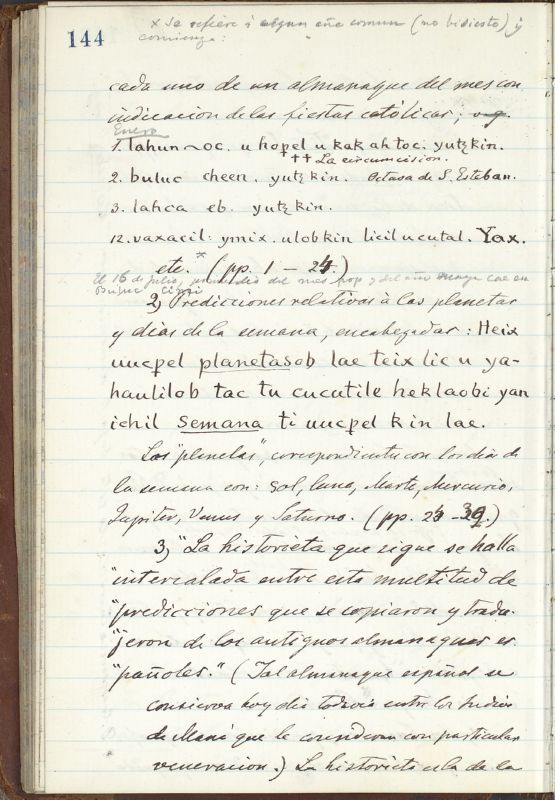 144
x Se refiere á algun año comun (no bisiesto) y
comienza:
cada uno de un almanaque del mes con
indicacion de las fiestas católicas; v.g.
Enero
1. lahun ~ oc. u hoppel u kak ah toc. yutzkin.
†† La circumcision.
2. buluc cheen. yutzkin. Octava de S. Esteban.
3. lahca eb. yutzkin.
12. vaxacil. ymix. ulobkin licil u cutal. Yax.
etc.* (pp. 1 – 24.)
El 16 de julio, primer dia del mes pop y del año maya cae en
Buluc
2) Predicciones relativas á las planetas
y dias de la semana, encabezadas: Heix
uucppel planetasob lae teix lic u ya-
haulilob tac tu cucutile heklaobi yan
ichil semana ti uucppel kin lae.
Los "planetas", correspondientes con los dias de
la semana son: Sol, Luna, Marte, Mercurio,
Jupiter, Venus y Saturno. (pp. 39.)
3) "La historieta que sigue se halla
"intercalada entre esta multitud de
"predicciones que se copiaron y tradu-
"jeron de los antiguos almanaques es
"pañoles." (Tal almanaque español se
conserva hoy dia todavia entre los Indios
de Mani que le consideran con particular
veneracion.) La historieta es la de la